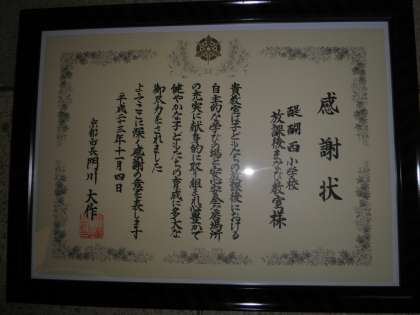 感謝状
醍醐西小学校
放課後まなび教室様
貴教室は子どもたちの放課後における
自主的な学びの場と安心安全な居場所
の充実に献身的に取り組まれ心豊かで
健やかな子どもたちの育成に多大な
御尽力をされました
よってここに深く感謝の意を表します
平成二十三年十一月四日
京都市長 門川大作